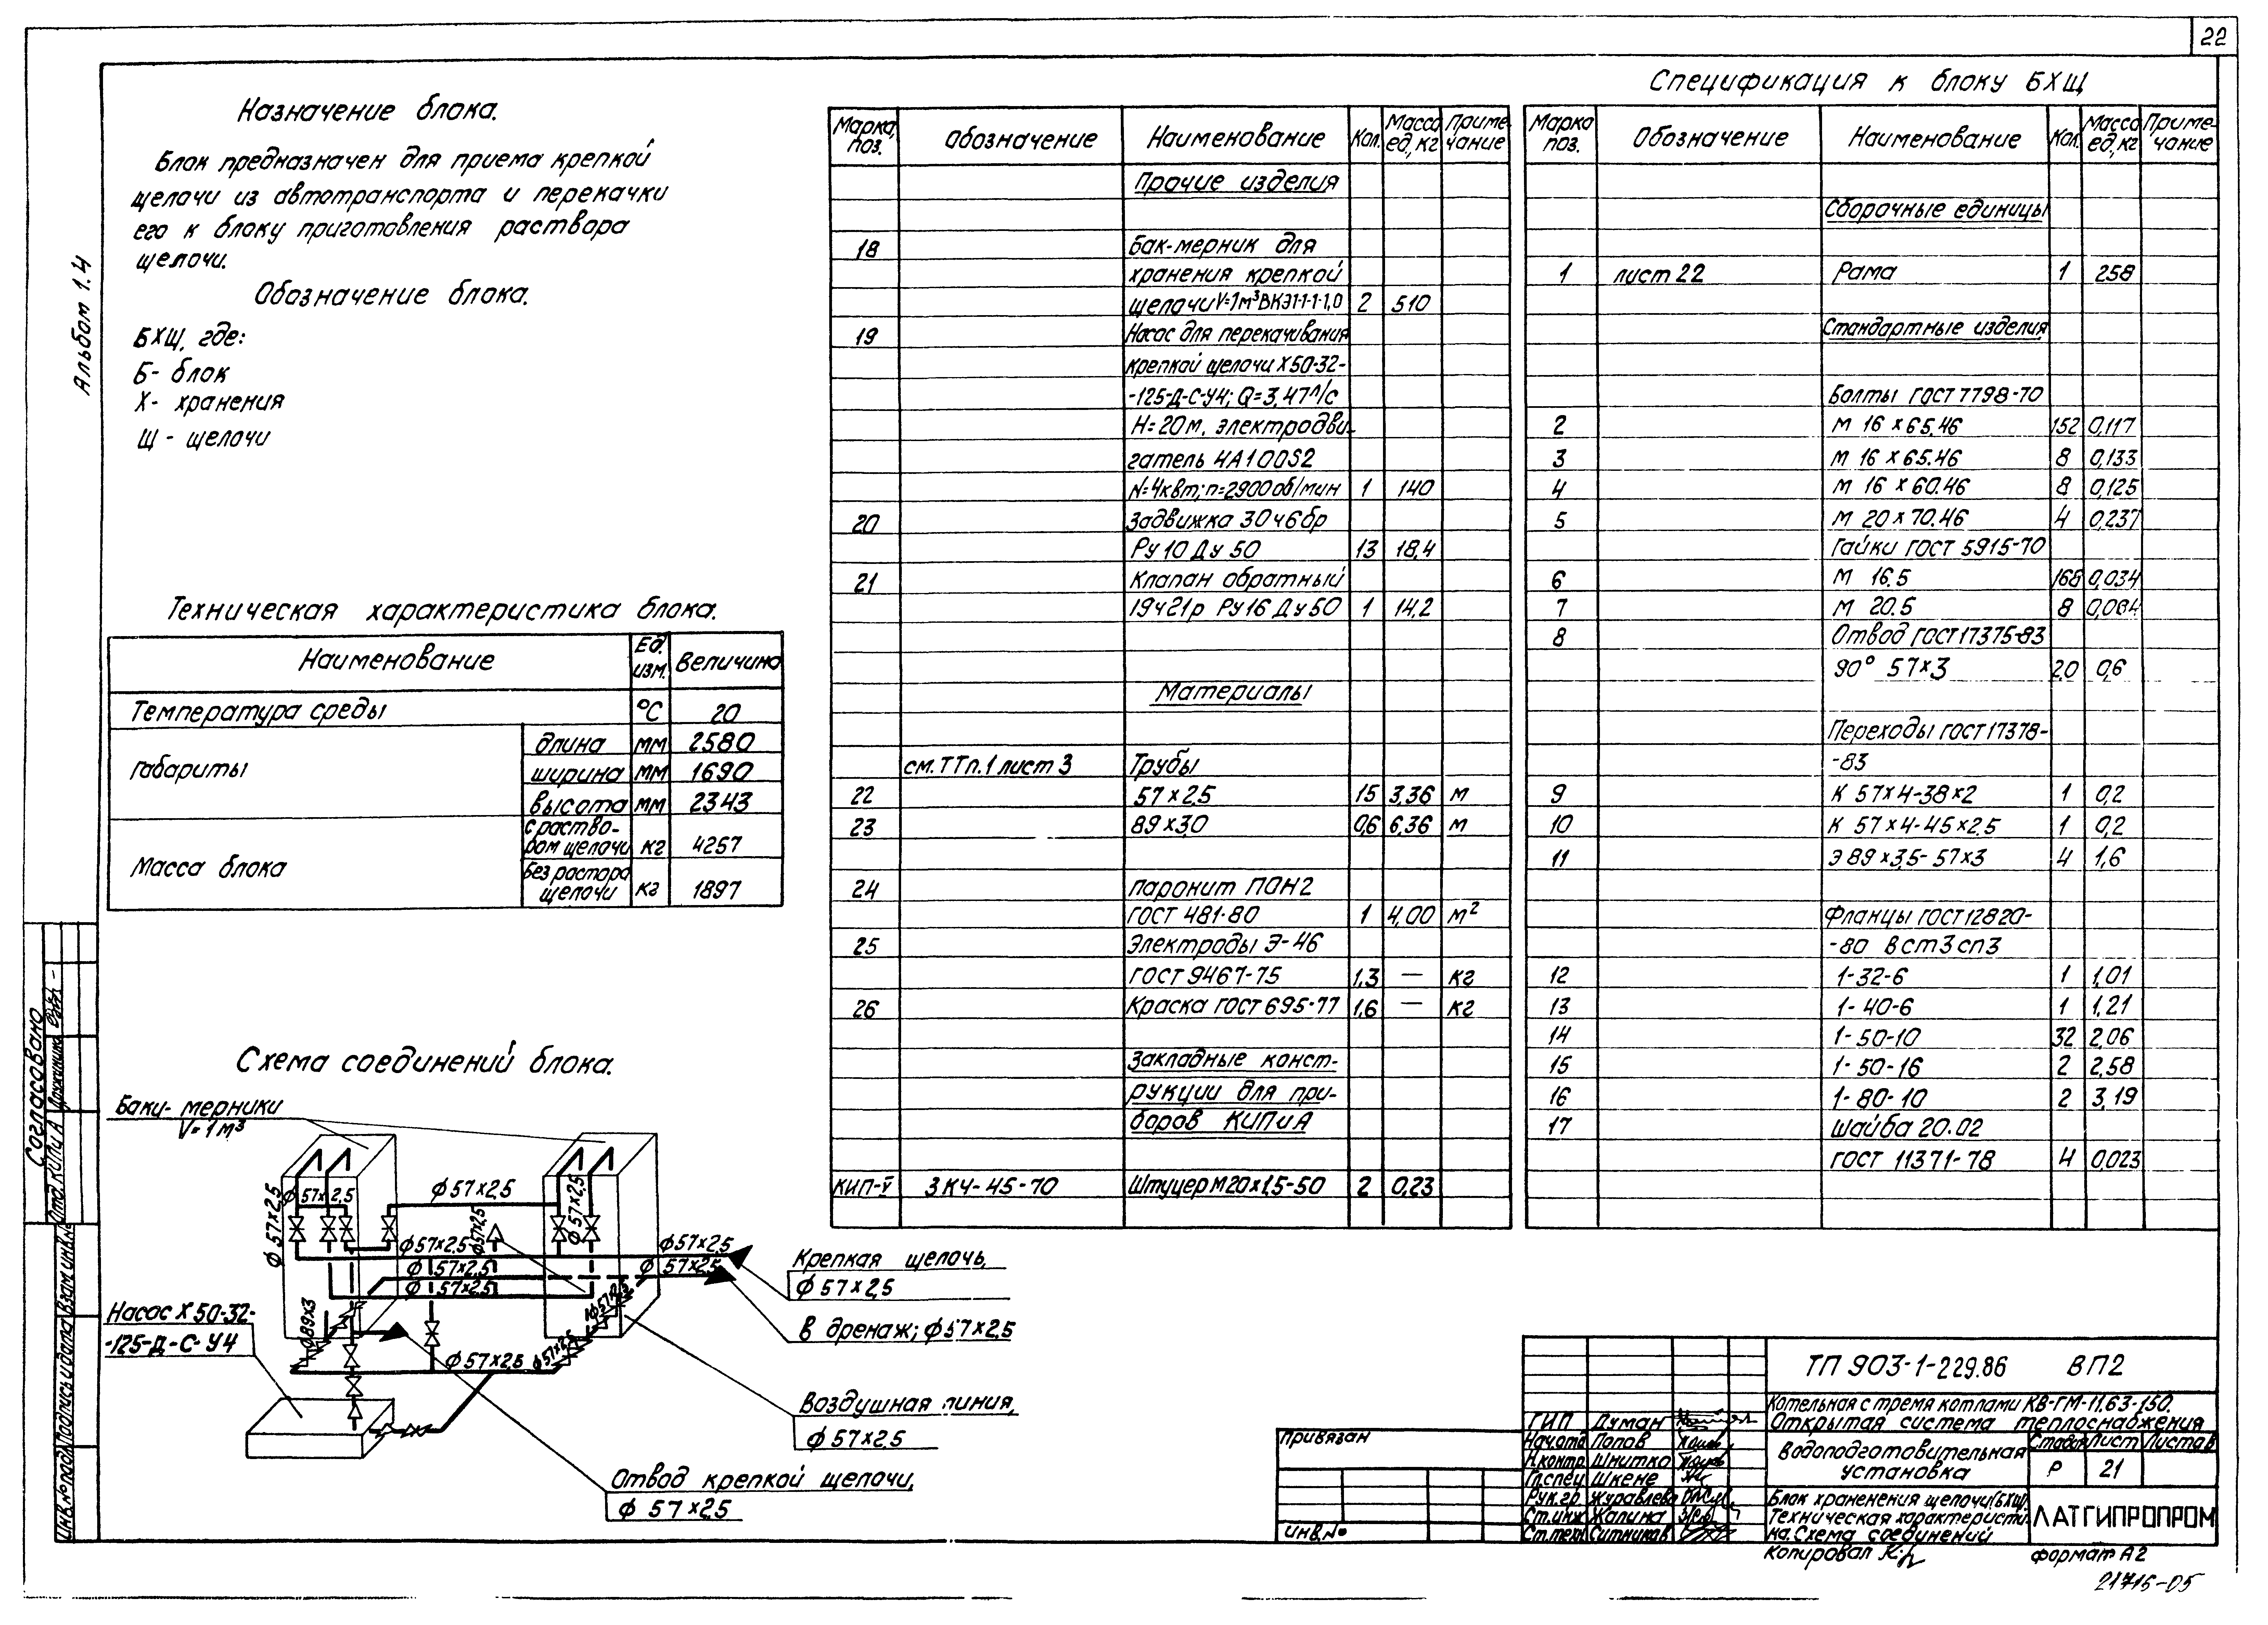 22
Альбом 1.4
Назначение блока.
Блок предназначен для приема крепкой
щелочи из автотранспорта и перекачки
его к блоку приготовления раствора
щелочи.
Обозначение блока.
БХЩ, где:
Б- блок
Х- хранения
Щ - щелочи
Техническая характеристика блока.
Наименование Ед. изм. Величина
Температура среды °С 20
Габариты длина мм 2580
ширина мм 1690
высота мм 2343
Масса блока с раство-
ром щелочи кг 4257
Без растора
щелочи кг 1897
Схема соединений блока.
Баки- мерники
V=1м³
ϕ57×2,5
ϕ57×2,5
ϕ57×2,5
ϕ57×2,5
ϕ57×2,5
ϕ57×2,5
ϕ57×2,5
ϕ57×2,5
ϕ57×2,5
ϕ57×2,5
ϕ57×2,5
ϕ89×3
ϕ57×2,5
ϕ57×2,5
ϕ57×2,5
Крепкая щелочь,
ϕ57×2,5
в дренаж; ϕ57×2,5
Насос Х50-32-
-125-Д-С-У4
Воздушная линия,
ϕ57×2,5
Отвод крепкой щелочи,
ϕ 57×2,5
Марка, поз. Обозначение Наименование Кол. Масса ед., кг Приме-чание
Прочие изделия
18 Бак-мерник для
хранения крепкой
щелочи V=1м³ВКЭ1-1-1-1,0 2 510
19 Насос для перекачивания
крепкой щелочи Х50-32-
-125-Д-С-У4; Q=3,47л/с
Н=20м, электродви-
гатель 4А100S2
N=4квт; n=2900об/мин 1 140
20 Задвижка 30ч6бр
Ру10 Ду 50 13 18,4
21 Клапан обратный
19ч21р Ру16 Ду50 1 14,2
Материалы
см. ТТп.1 лист 3 Трубы
22 57×2,5 15 3,36 м
23 89×3,0 0,6 6,36 м
24 паронит ПОН2
ГОСТ 481-80 1 4,00 м²
25 Электроды Э-46
ГОСТ 9467-75 1,3 — кг
26 Краска ГОСТ 695-77 1,6 — кг
Закладные конст-
рукции для при-
боров КИПиА
КИП-V 3КЧ-45-70 Штуцер М20×1,5-50 2 0,23
Спецификация к блоку БХЩ
Марка поз. Обозначение Наименование Кол. Масса ед., кг Приме-чание
Сборочные единицы
1 лист 22 Рама 1 258
Стандартные изделия
Болты ГОСТ 7798-70
2 М 16×65.46 152 0,117
3 М 16×65.46 8 0,133
4 М 16×60.46 8 0,125
5 М 20×70.46 4 0,237
Гайки ГОСТ 5915-70
6 М 16.5 168 0,034
7 М 20.5 8 0,064
8 Отвод ГОСТ17375-83
90° 57×3 20 0,6
Переходы ГОСТ17378-
-83
9 К 57×4-38×2 1 0,2
10 К 57×4-45×2,5 1 0,2
11 Э 89×3,5-57×3 4 1,6
Фланцы ГОСТ12820-
-80 Вст3сп3
12 1-32-6 1 1,01
13 1-40-6 1 1,21
14 1-50-10 32 2,06
15 1-50-16 2 2,58
16 1-80-10 2 3,19
17 шайба 20.02
ГОСТ 11371-78 4 0,023
Привязан
Инв.№
ГИП Думан
Нач.отд Попов
Н.контр Шнитко
Гл.спец Шкене
Рук.гр. Журавлева
Ст.инж Жалина
Ст.техн Ситников
ТП 903-1-229.86 ВП2
Котельная с тремя котлами КВ-ГМ-11,63-150.
Открытая система теплоснабжения
Водоподготовительная
установка
Стадия Лист Листов
Р 21
Блок храненения щелочи(БХЩ).
Техническая характеристи-
ка. Схема соединений
ЛАТГИПРОПРОМ
Копировал
формат А2
21715-05
Согласовано
Отд. КИПиА
Инв.№подл. Подпись и дата Взам.инв.№